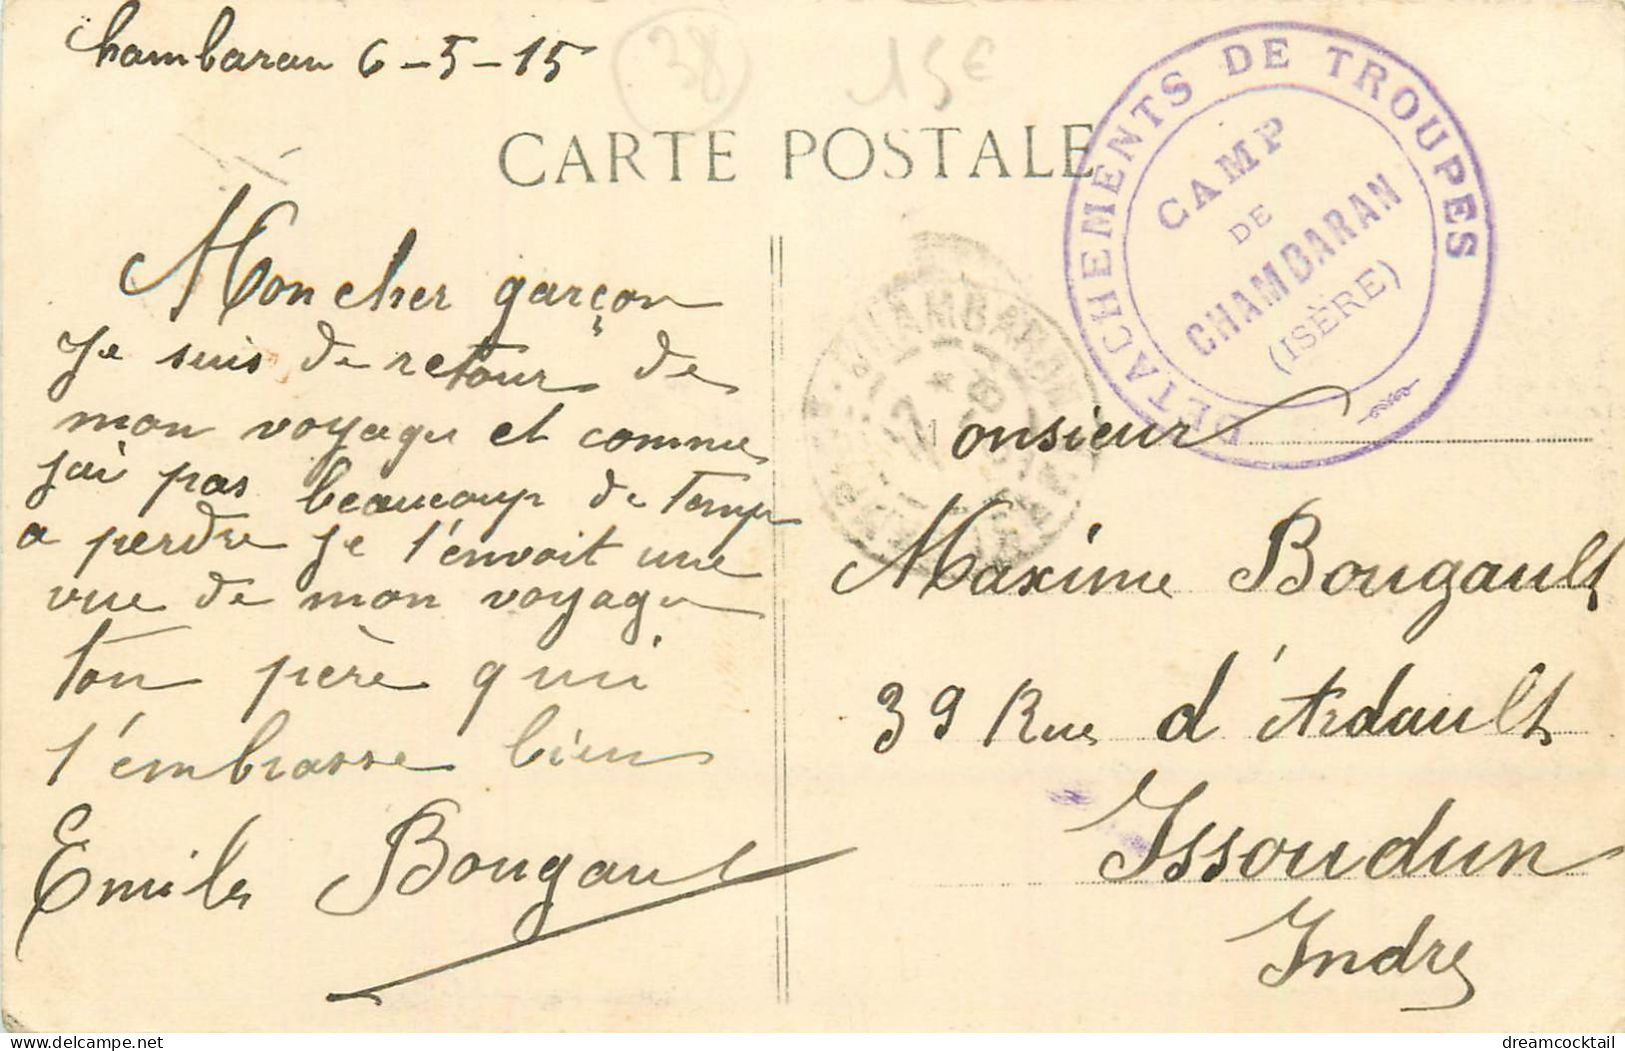 Chambaran 6-5-15
38
15€
CARTE POSTALE
DETACHEMENTS DE TROUPES
CAMP
DE
CHAMBARAN
(ISÈRE)
CHAMBARAN
Mon cher garçon
Je suis de retour de
mon voyage et comme
jai pas beaucoup de temps
a perdre je t'envoit une
vue de mon voyage
ton père qui
t'embrasse bien
Emile Bougault
Monsieur
Maxime Bougault
39 Rue d'Ardault
Issoudun
Indre
dreamcocktail